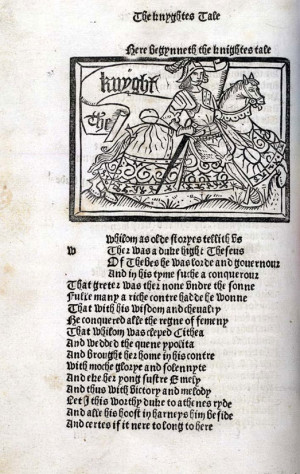 The knyghtes Tale
Here begynneth the knightes tale
knyght
the
whilom as olde storyes tellith vs
w Ther was a duke hight Theseus
Of Thebes he was lorde and gouernour
And in his tyme suche a conquerour
That greter was ther none vndre the sonne
Fulle many a riche contre had he wonne
That with his wisdom and cheualry
He conquered alle the regne of femeny
That whilom was cleped Cithea
And wedded the quene ypolita
And brought her home in his contre
With moche glorye and solennyte
And eke her yong sustre Emely
And thus with victory and melody
Let I this worthy duke to athenes ryde
And alle his hoost in harneys him beside
And certes if it nere to long to here